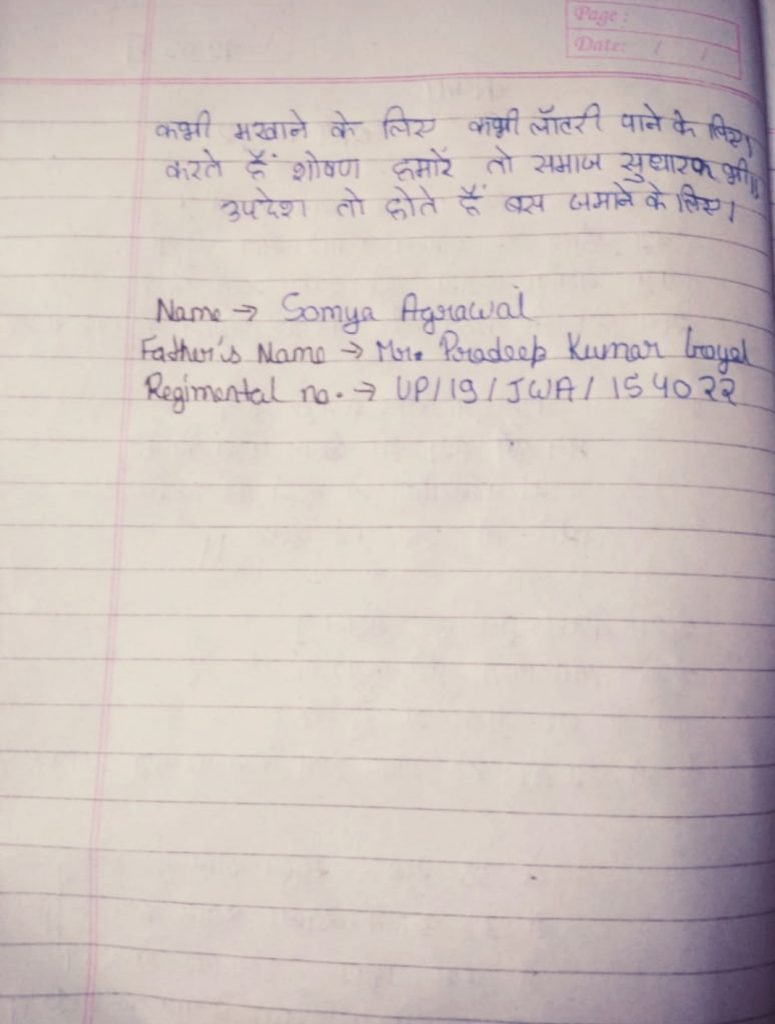 Page :
Date: / /
कभी मखाने के लिए कभी लॉटरी पाने के लिए।
करते हैं शोषण हमारे तो समाज सुधारक भी॥
उपदेश तो होते हैं बस जमाने के लिए।
Name → Somya Agrawal
Father's Name → Mr. Pradeep Kumar Goyal
Regimental no. → UP/19/JWA/154022